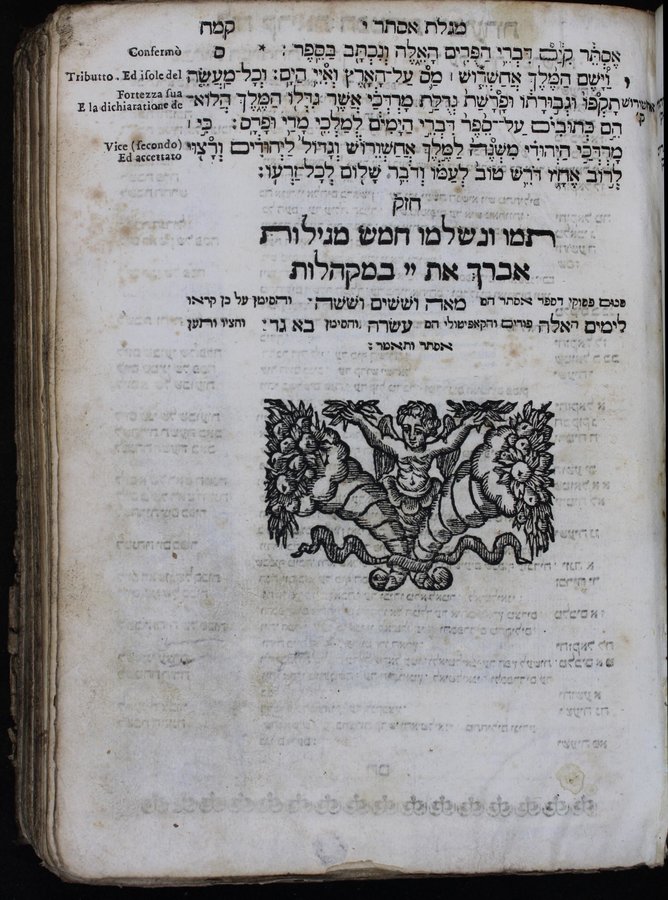 מגלת אסתר י
קמח
אֶסְתֵּר קִיַּם דִּבְרֵי הַפֻּרִים הָאֵלֶּה וְנִכְתָּב בַּסֵּפֶר : * ס
Confermò
י וַיָּשֶׂם הַמֶּלֶךְ אֲחַשְׁרֹשׁ ׀ מַס עַל־הָאָרֶץ וְאִיֵּי הַיָּם : וְכָל־מַעֲשֵׂה
Tributto . Ed isole del
אחשורוש ק
תָקְפּוֹ וּגְבוּרָתוֹ וּפָרָשַׁת גְּדֻלַּת מָרְדֳּכַי אֲשֶׁר גִּדְּלוֹ הַמֶּלֶךְ הֲלוֹא־
Fortezza sua
E la dichiaratione de
הֵם כְּתוּבִים עַל־סֵפֶר דִּבְרֵי הַיָּמִים לְמַלְכֵי מָדַי וּפָרָס : כִּי ׀
מָרְדֳּכַי הַיְּהוּדִי מִשְׁנֶה לַמֶּלֶךְ אֲחַשְׁוֵרוֹשׁ וְגָדוֹל לַיְּהוּדִים וְרָצוּי
Vice (secondo)
Ed accettato
לְרֹב אֶחָיו דֹּרֵשׁ טוֹב לְעַמּוֹ וְדֹבֵר שָׁלוֹם לְכָל־זַרְעוֹ :
חזק
תמו ונשלמו חמש מגילות
אברך את יי במקהלות
סכום פסוקי דספר אסתר הם מאה וששים וששה . והסימן על כן קראו
לימים האלה פורים והקאפיטולי הם עשרה והסימן בא גד : וחציו ותען
אסתר ותאמר :